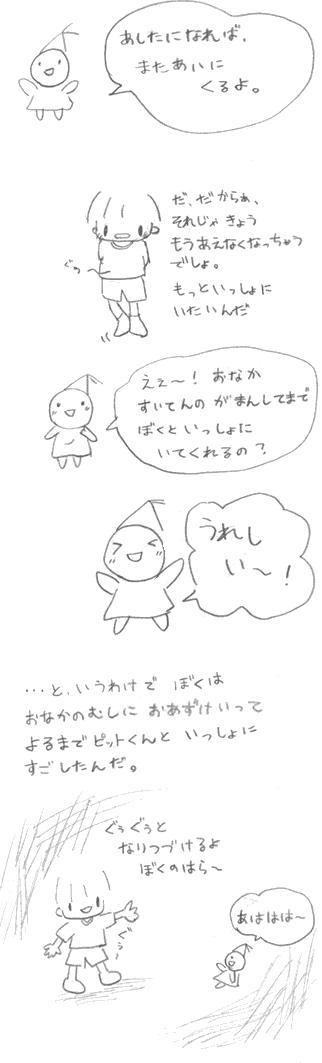 あしたになれば、
またあいに
くるよ。
だ、だからぁ、
それじゃ きょう
もうあえなくなっちゃう
でしょ。
もっといっしょに
いたいんだ
ぐぅ〜
ええ〜！ おなか
すいてんの がまんしてまで
ぼくといっしょに
いてくれるの？
うれし
い〜！
・・・と、いうわけで ぼくは
おなかのむしに おあずけいって
よるまでピットくんと いっしょに
すごしたんだ。
ぐぅぐぅと
なりつづけるよ
ぼくのはら〜
ぐぅ〜
あははは〜